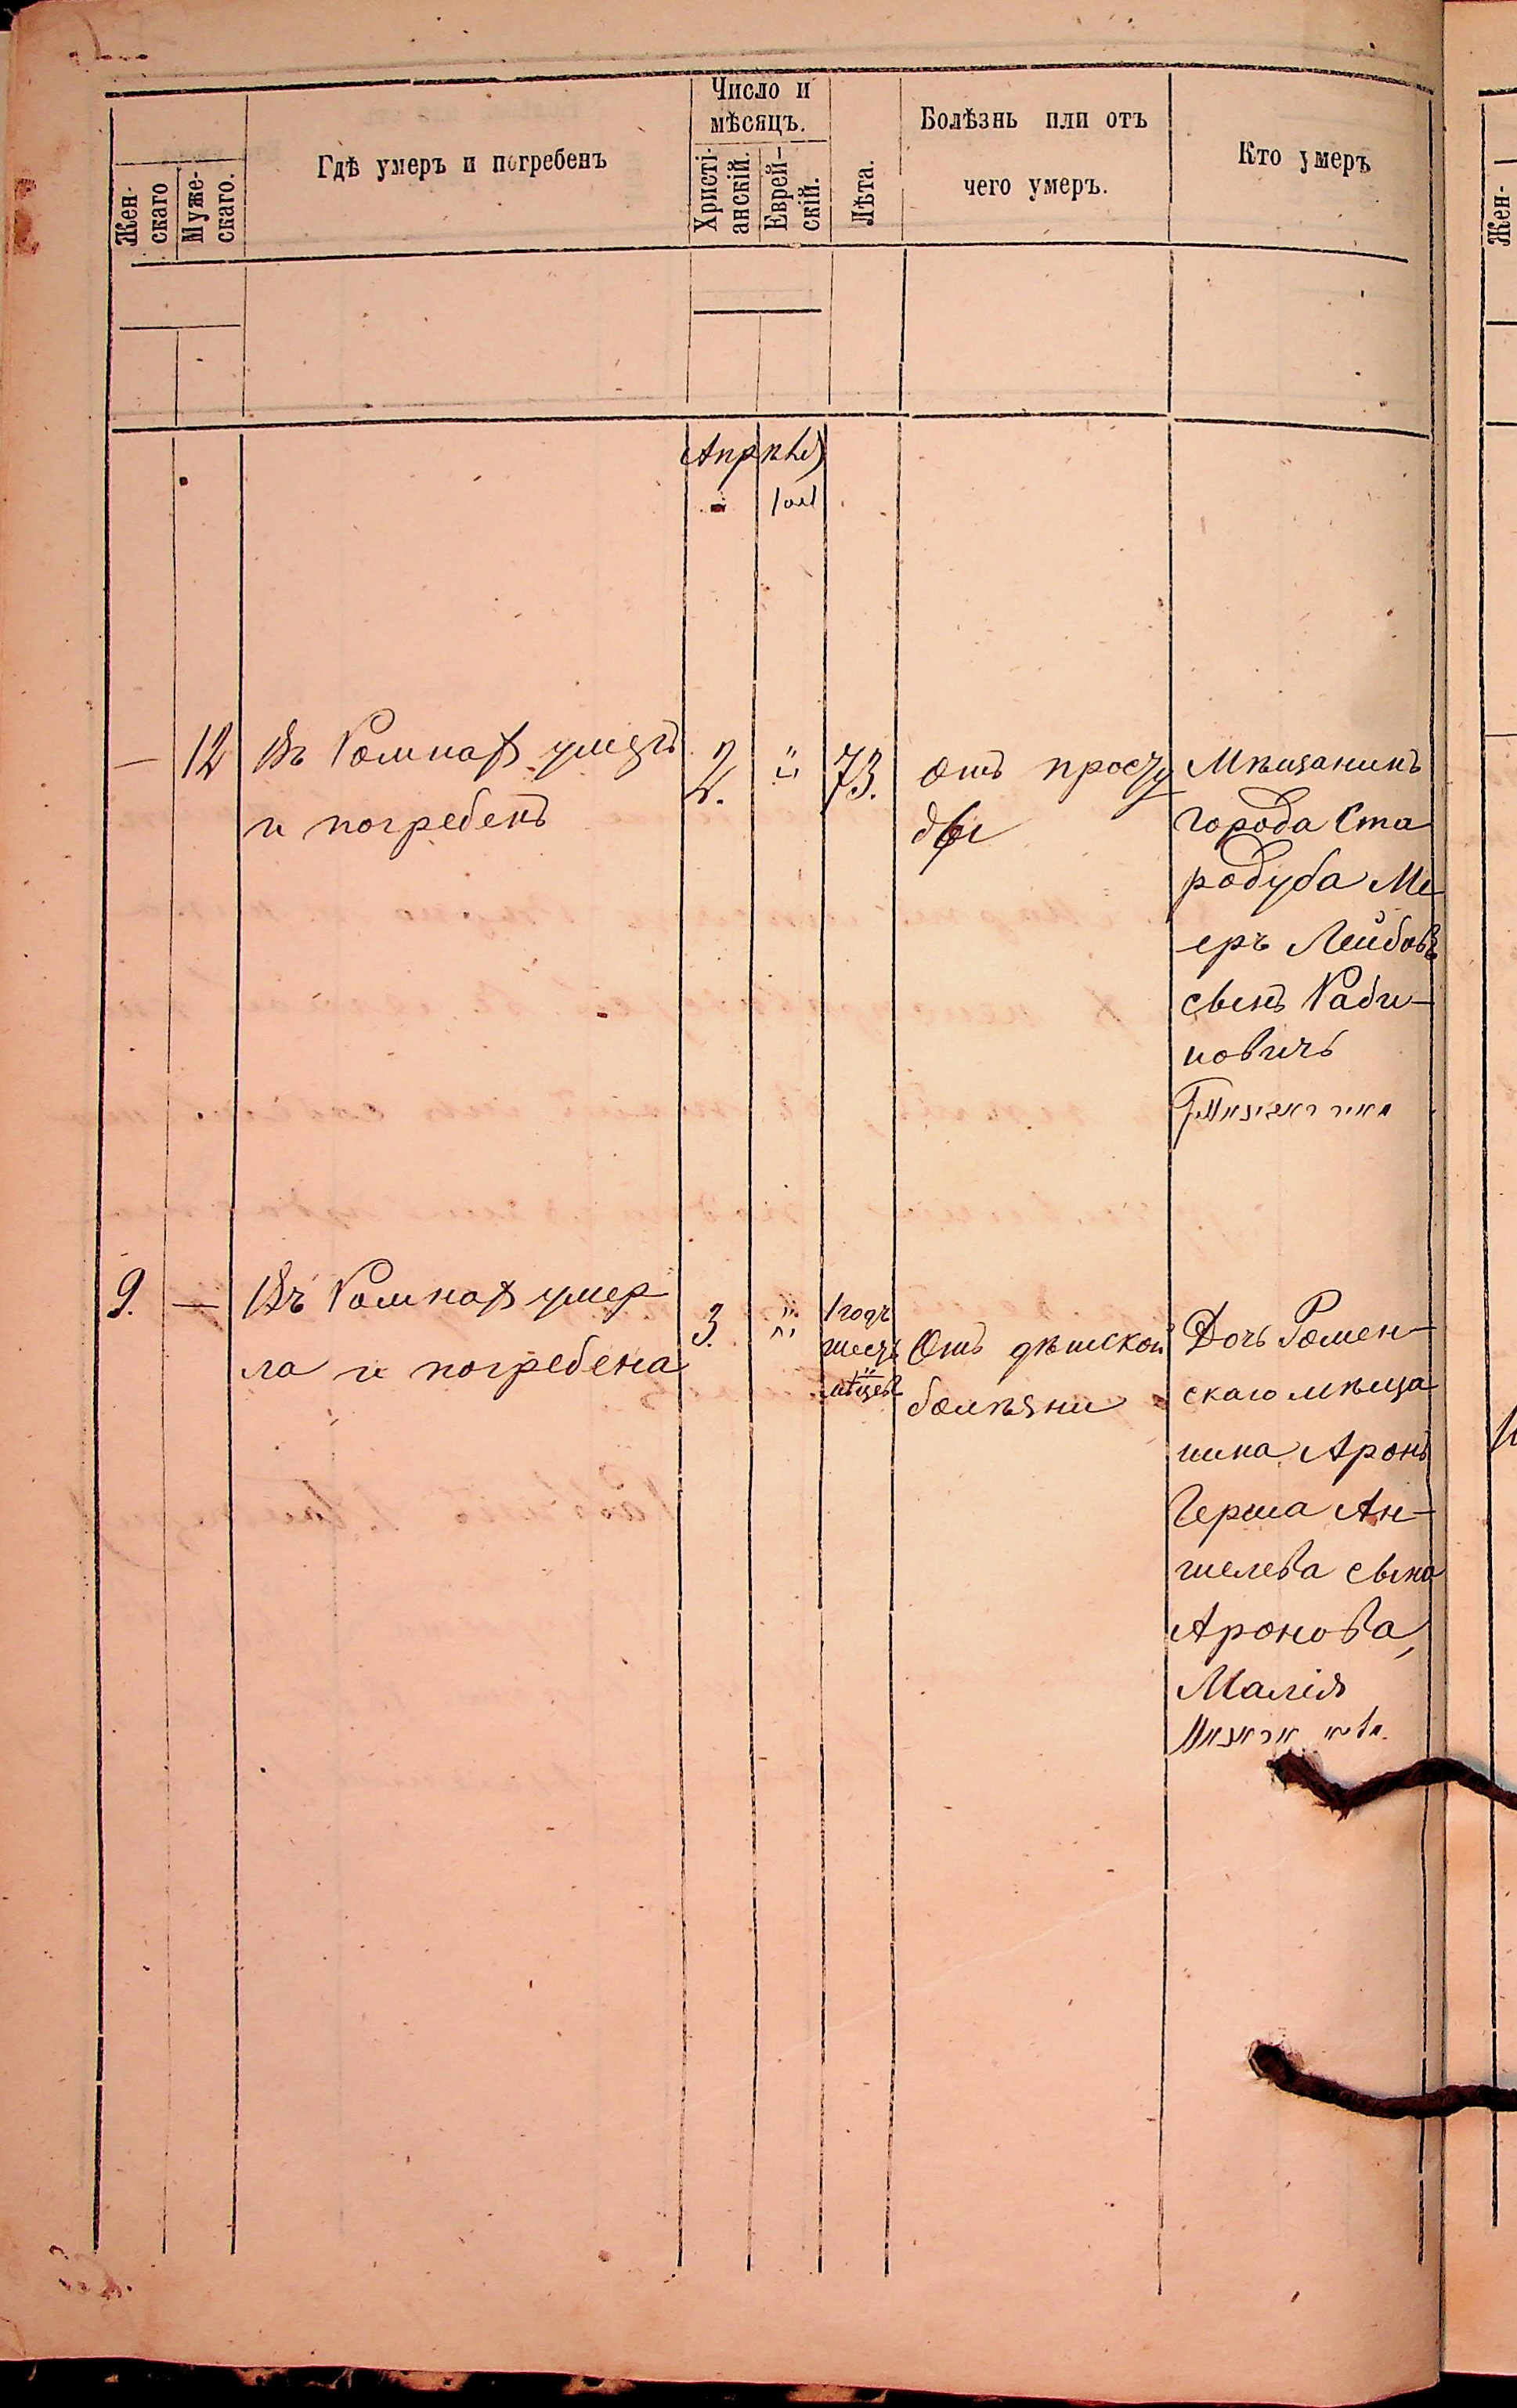 Число и
мѣсяцъ.
Жен-
скаго
Муже-
скаго.
Гдѣ умеръ и погребенъ
Христі-
анскій.
Еврей-
скій.
Лѣта.
Болѣзнь или отъ
чего умеръ.
Кто умеръ
Апрѣль
— 12
Въ Ромнахъ умеръ
и погребенъ
2.
"
73.
отъ просту
ды
Мѣщанинъ
города Ста
родуба Ме
еръ Лейбовъ
сынъ Раби-
новичъ
9. —
Въ Ромнахъ умер
ла и погребена
3.
"
1 годъ
шесть
мѣсяцевъ
Отъ дѣтской
болѣзни
Дочь Ромен-
скаго мѣща
нина Аронъ
Герша Ан-
шелева сына
Аронова,
Малія
Жен-